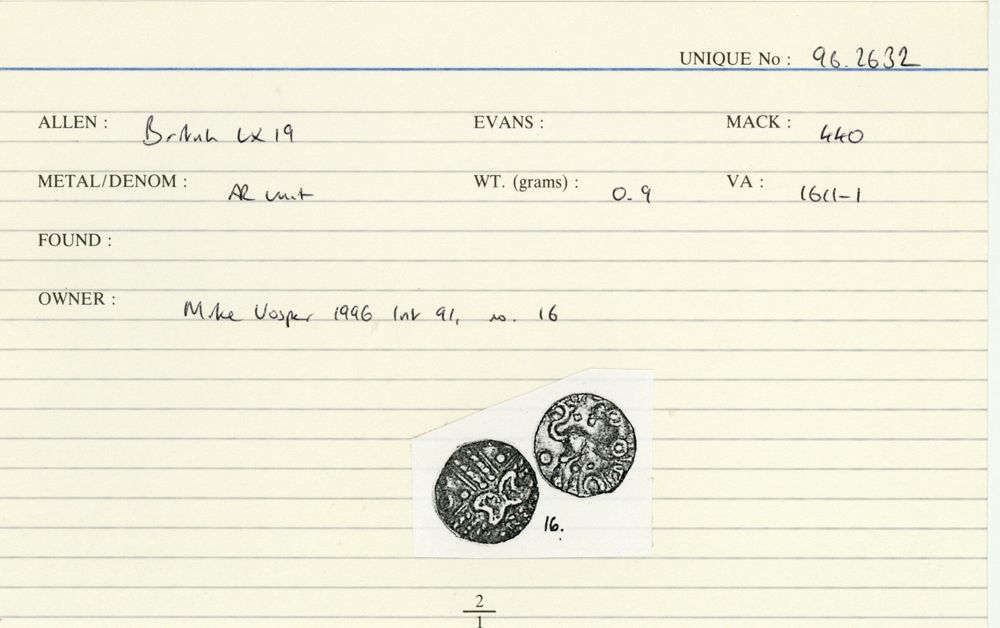 UNIQUE No : 96.2632
ALLEN : British LX 19 EVANS : MACK : 440
METAL/DENOM : AR unit WT. (grams) : 0.9 VA : 1611-1
FOUND :
OWNER : Mike Vosper 1996 list 91, no. 16
16.
2
1